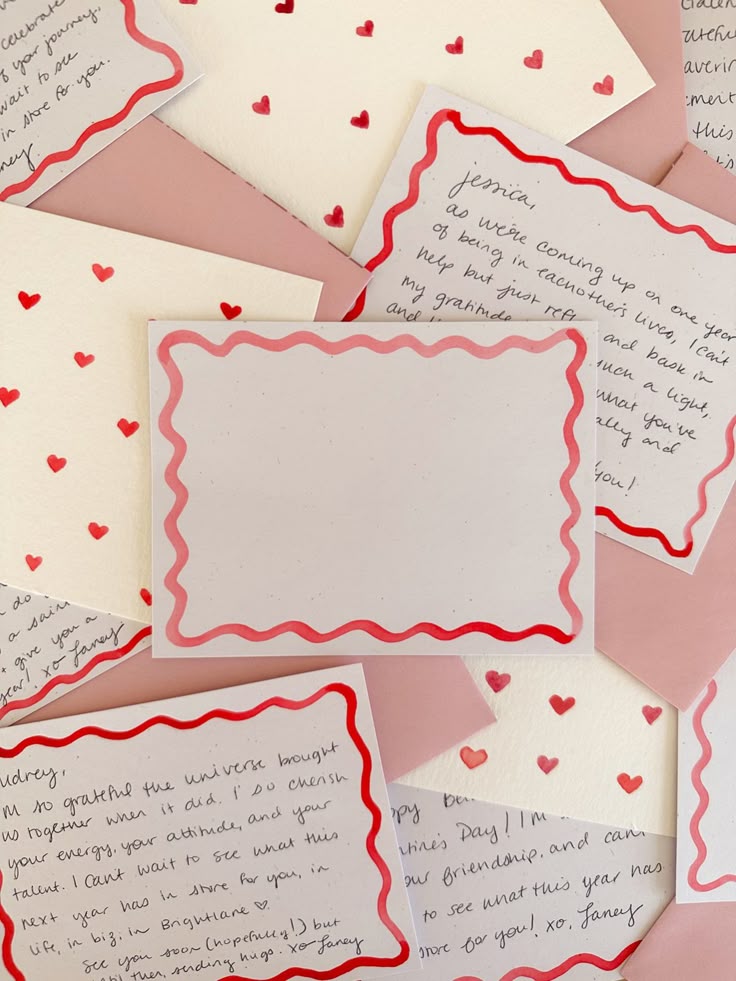 celebrate
of your journey.
wait to see
in store for you.
jessica,
as we're coming up on one year
of being in eachother's lives, I can't
help but just
my gratitude and bask in
and such a light,
what you've
ally and
you!
a
give you a
year! xo Janey
udrey,
m so grateful the universe brought
us together when it did. I so cherish
your energy, your attitude, and your
talent. I can't wait to see what this
next year has in store for you, in
life, in biz, in Brightlane ♡
see you soon (hopefully!) but
til then, sending hugs. xo Janey
ppy
tine's Day! I'm
our friendship, and can
to see what this year has
tore for you! xo, Janey
this